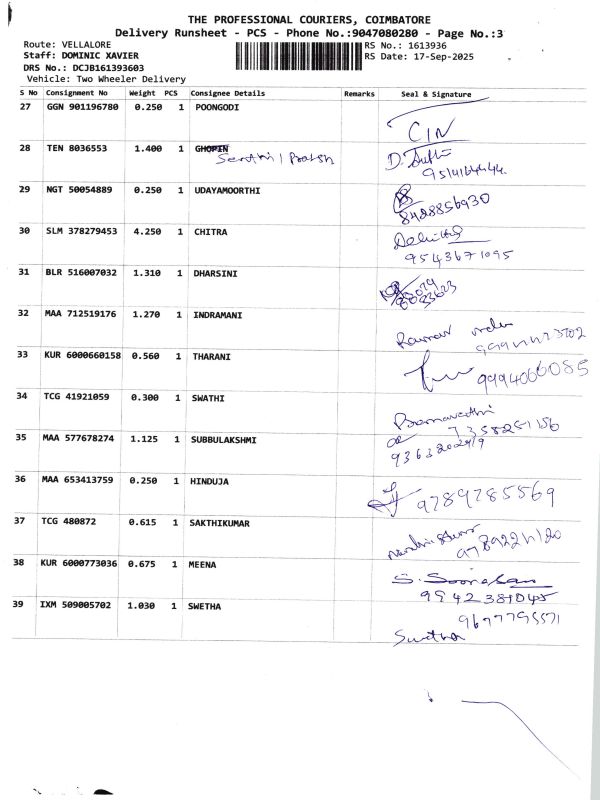 THE PROFESSIONAL COURIERS, COIMBATORE
Delivery Runsheet - PCS - Phone No.:9047080280 - Page No.:3
Route: VELLALORE
RS No.: 1613936
Staff: DOMINIC XAVIER
RS Date: 17-Sep-2025
DRS No.: DCJB161393603
Vehicle: Two Wheeler Delivery
S No Consignment No Weight PCS Consignee Details Remarks Seal & Signature
27 GGN 901196780 0.250 1 POONGODI
CIN
28 TEN 8036553 1.400 1
Senthil Prakash
29 NGT 50054889 0.250 1 UDAYAMOORTHI
8428856930
30 SLM 378279453 4.250 1 CHITRA
9543671095
31 BLR 516007032 1.310 1 DHARSINI
32 MAA 712519176 1.270 1 INDRAMANI
33 KUR 6000660158 0.560 1 THARANI
9994066085
34 TCG 41921059 0.300 1 SWATHI
7358251156
35 MAA 577678274 1.125 1 SUBBULAKSHMI
36 MAA 653413759 0.250 1 HINDUJA
9789785569
37 TCG 480872 0.615 1 SAKTHIKUMAR
38 KUR 6000773036 0.675 1 MEENA
9942381045
39 IXM 509005702 1.030 1 SWETHA
9677795571
Swetha